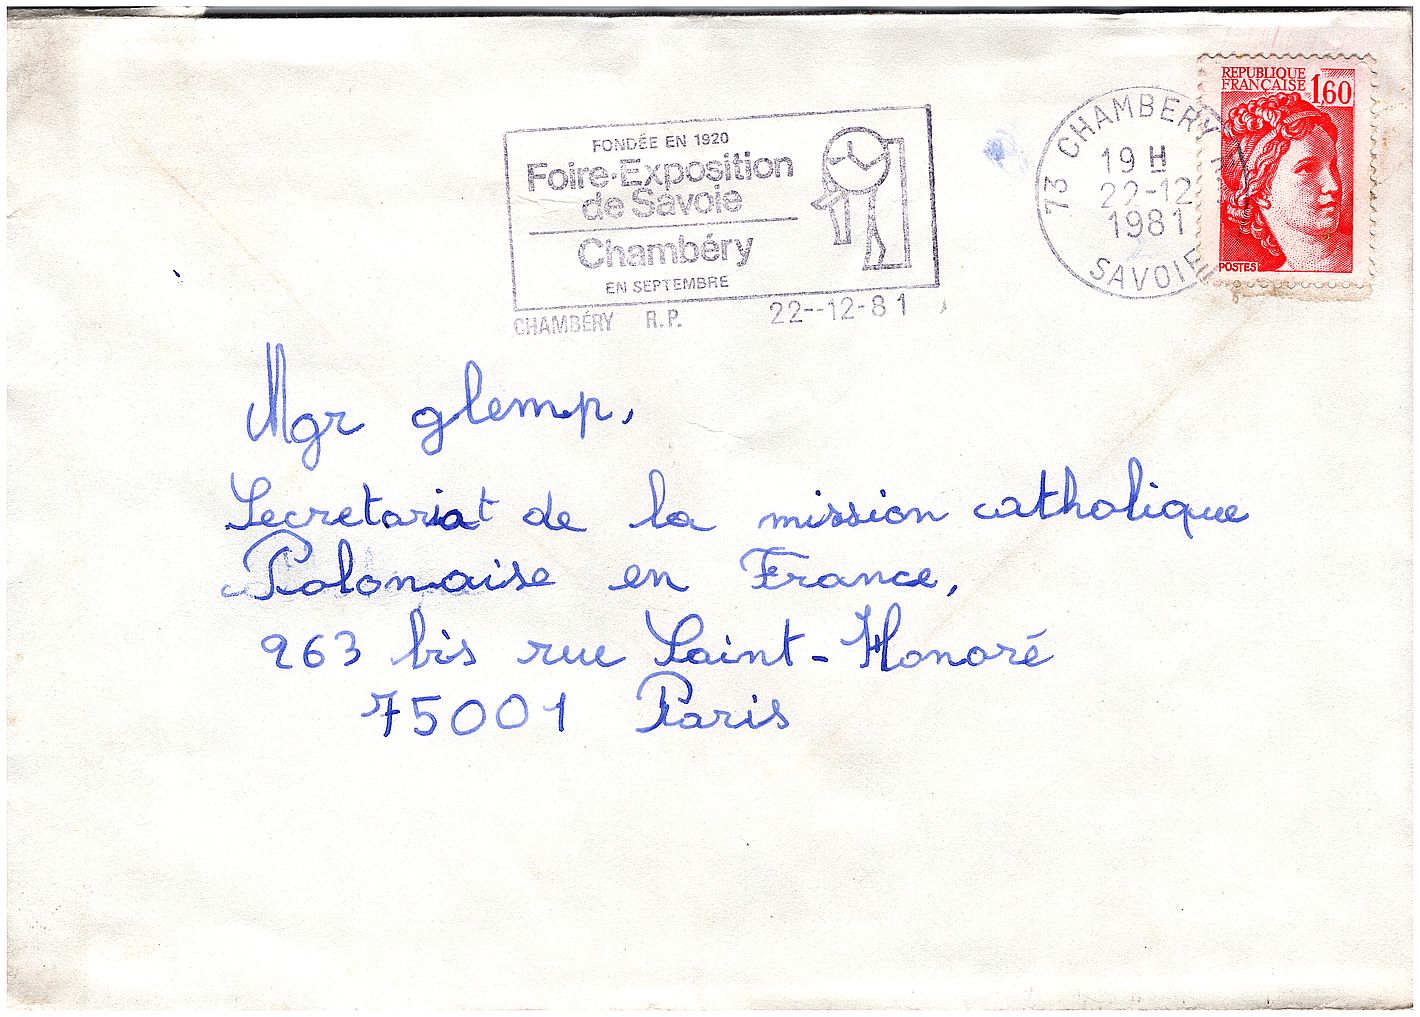 FONDÉE EN 1920
Foire-Exposition
de Savoie
Chambéry
EN SEPTEMBRE
CHAMBÉRY R.P. 22--12-81
73 CHAMBERY
19 H
22-12
1981
SAVOIE
REPUBLIQUE
FRANÇAISE 1,60
POSTES
Mgr glemp,
Secretariat de la mission catholique
Polonaise en France,
263 bis rue Saint-Honoré
75001 Paris